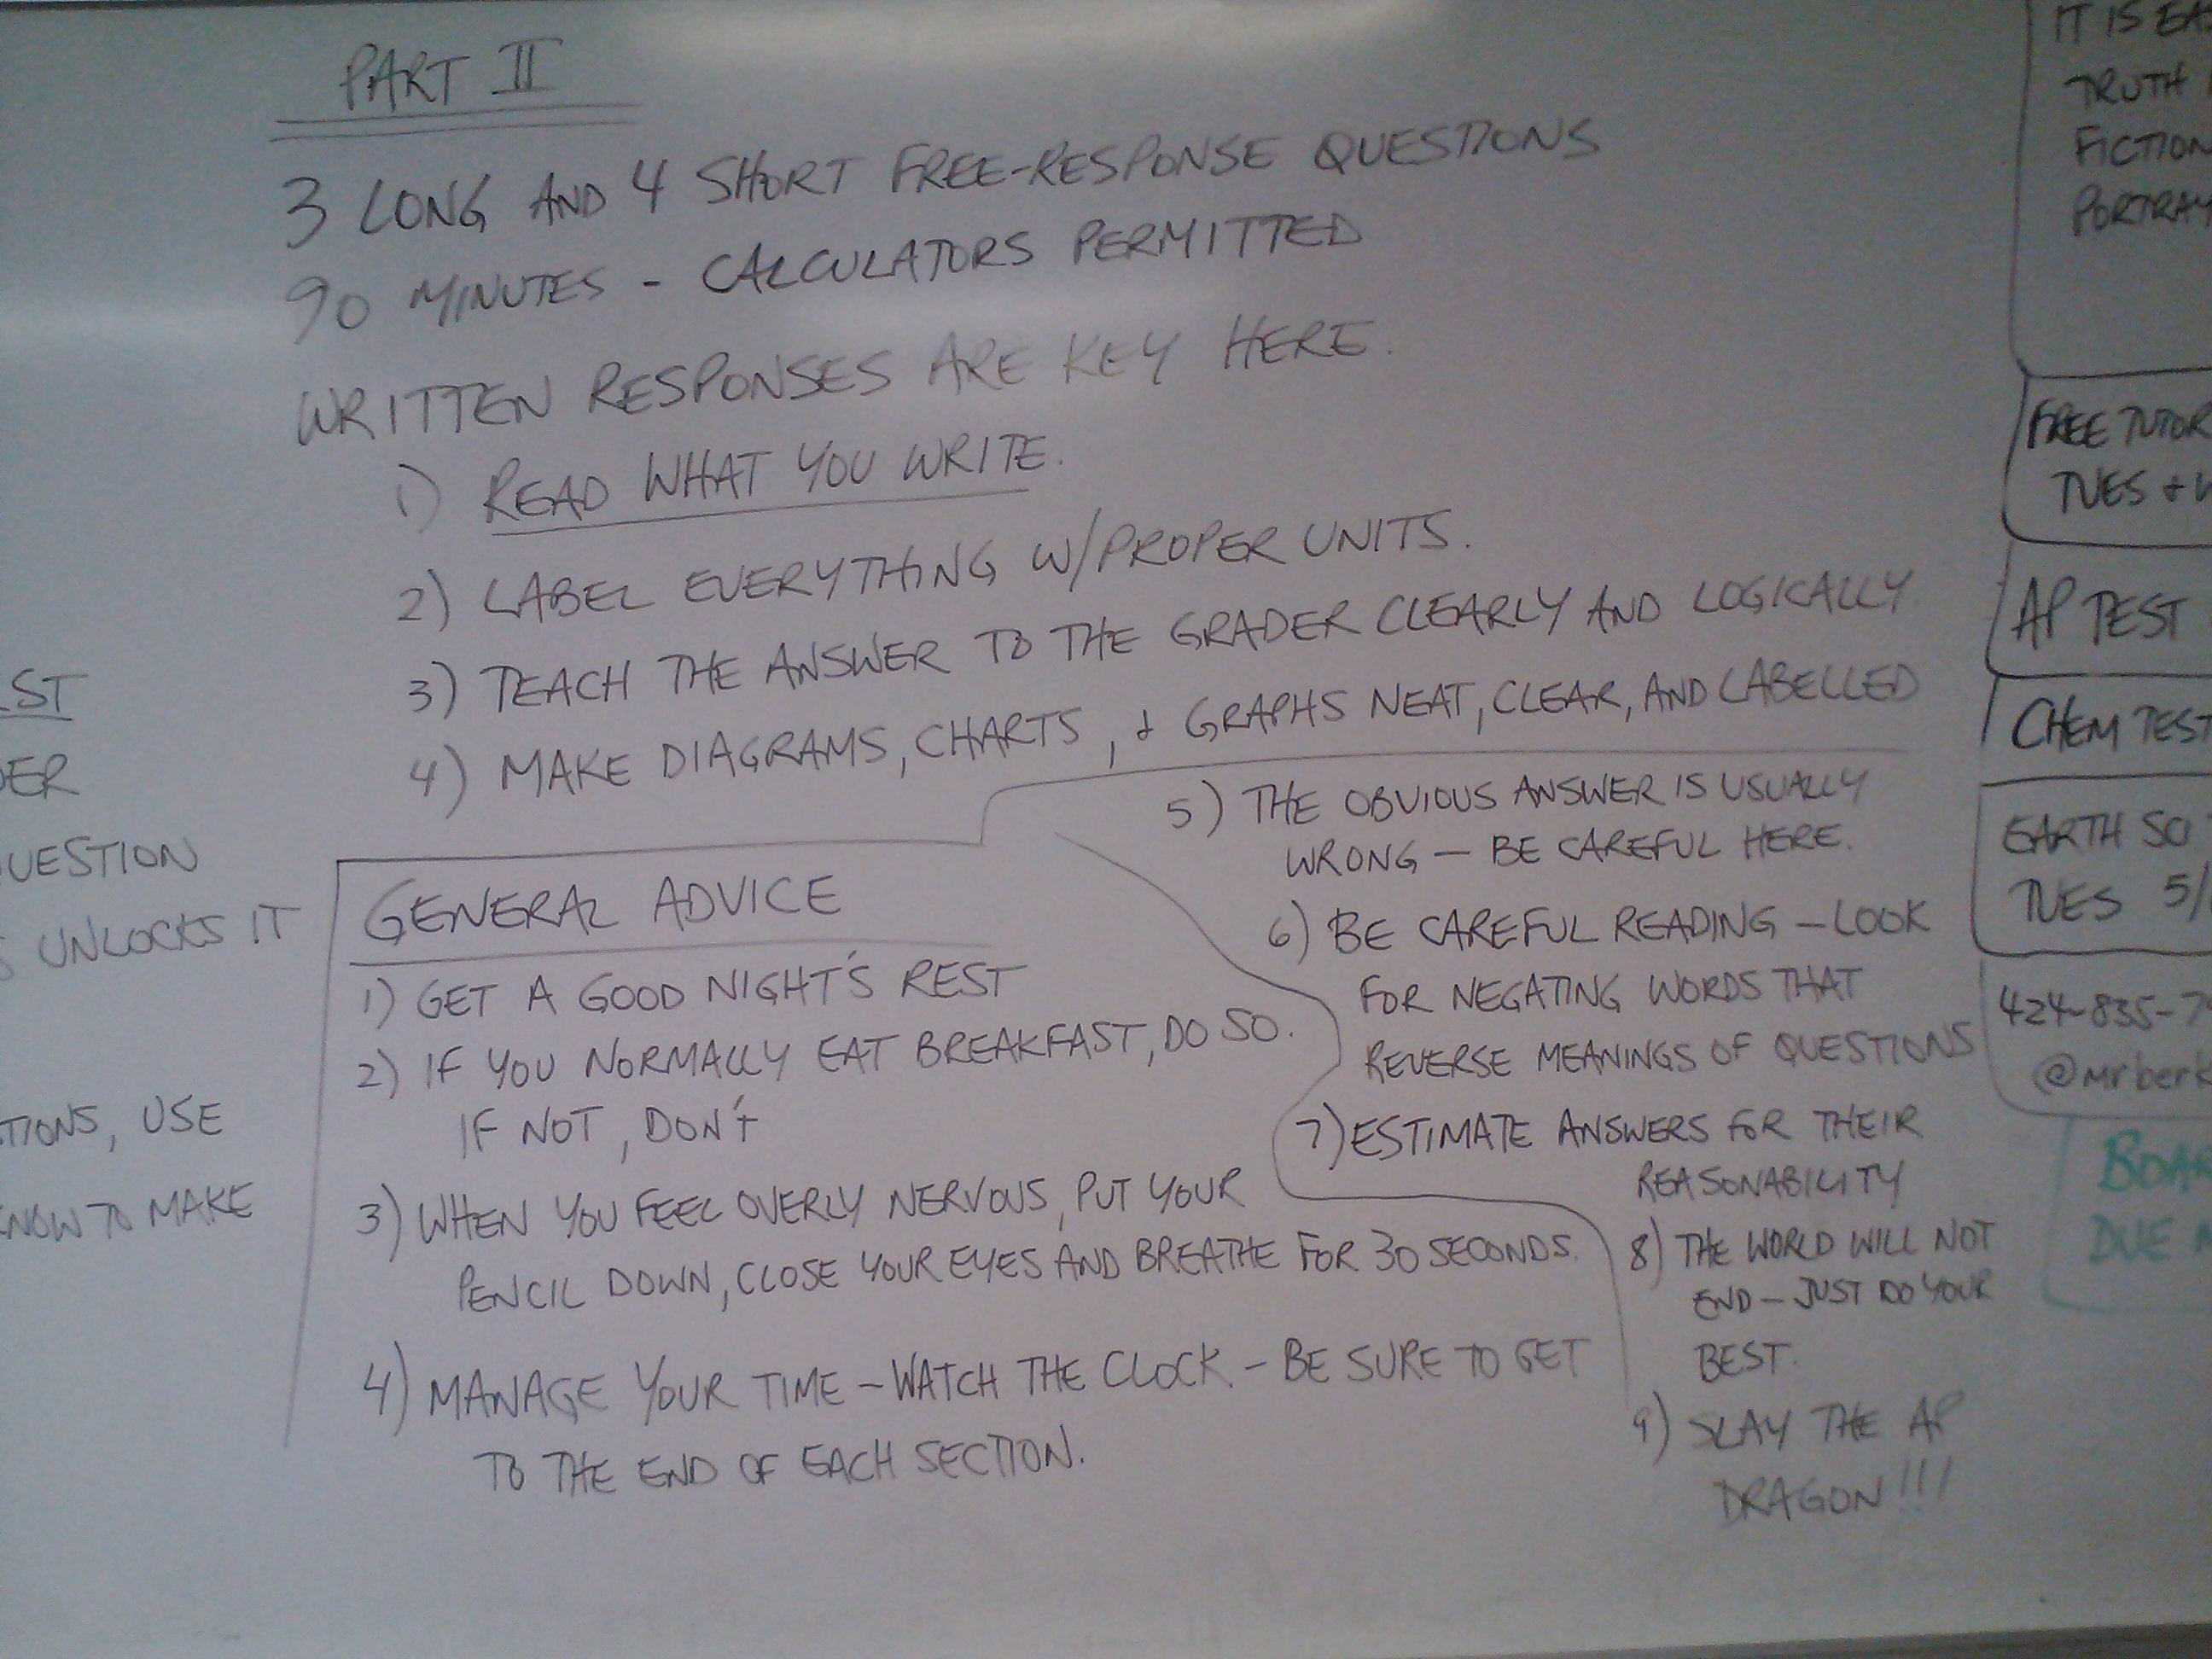 PART II
3 LONG AND 4 SHORT FREE-RESPONSE QUESTIONS
90 MINUTES - CALCULATORS PERMITTED
WRITTEN RESPONSES ARE KEY HERE.
1) READ WHAT YOU WRITE.
2) LABEL EVERYTHING W/PROPER UNITS.
3) TEACH THE ANSWER TO THE GRADER CLEARLY AND LOGICALLY
4) MAKE DIAGRAMS, CHARTS, + GRAPHS NEAT, CLEAR, AND LABELLED
GENERAL ADVICE
1) GET A GOOD NIGHT'S REST
2) IF YOU NORMALLY EAT BREAKFAST, DO SO.
IF NOT, DON'T
3) WHEN YOU FEEL OVERLY NERVOUS, PUT YOUR
PENCIL DOWN, CLOSE YOUR EYES AND BREATHE FOR 30 SECONDS.
4) MANAGE YOUR TIME - WATCH THE CLOCK. - BE SURE TO GET
TO THE END OF EACH SECTION.
5) THE OBVIOUS ANSWER IS USUALLY
WRONG - BE CAREFUL HERE.
6) BE CAREFUL READING - LOOK
FOR NEGATING WORDS THAT
REVERSE MEANINGS OF QUESTIONS
7) ESTIMATE ANSWERS FOR THEIR
REASONABILITY
8) THE WORLD WILL NOT
END - JUST DO YOUR
BEST.
9) SLAY THE AP
DRAGON!!!
UNLOCKS IT
USE
TO MAKE
IT IS
TRUTH
FICTION
FREE
TUES +
AP TEST
CHEM TEST
EARTH SCI
TUES 5/
424-835-7
@mrberk
DUE